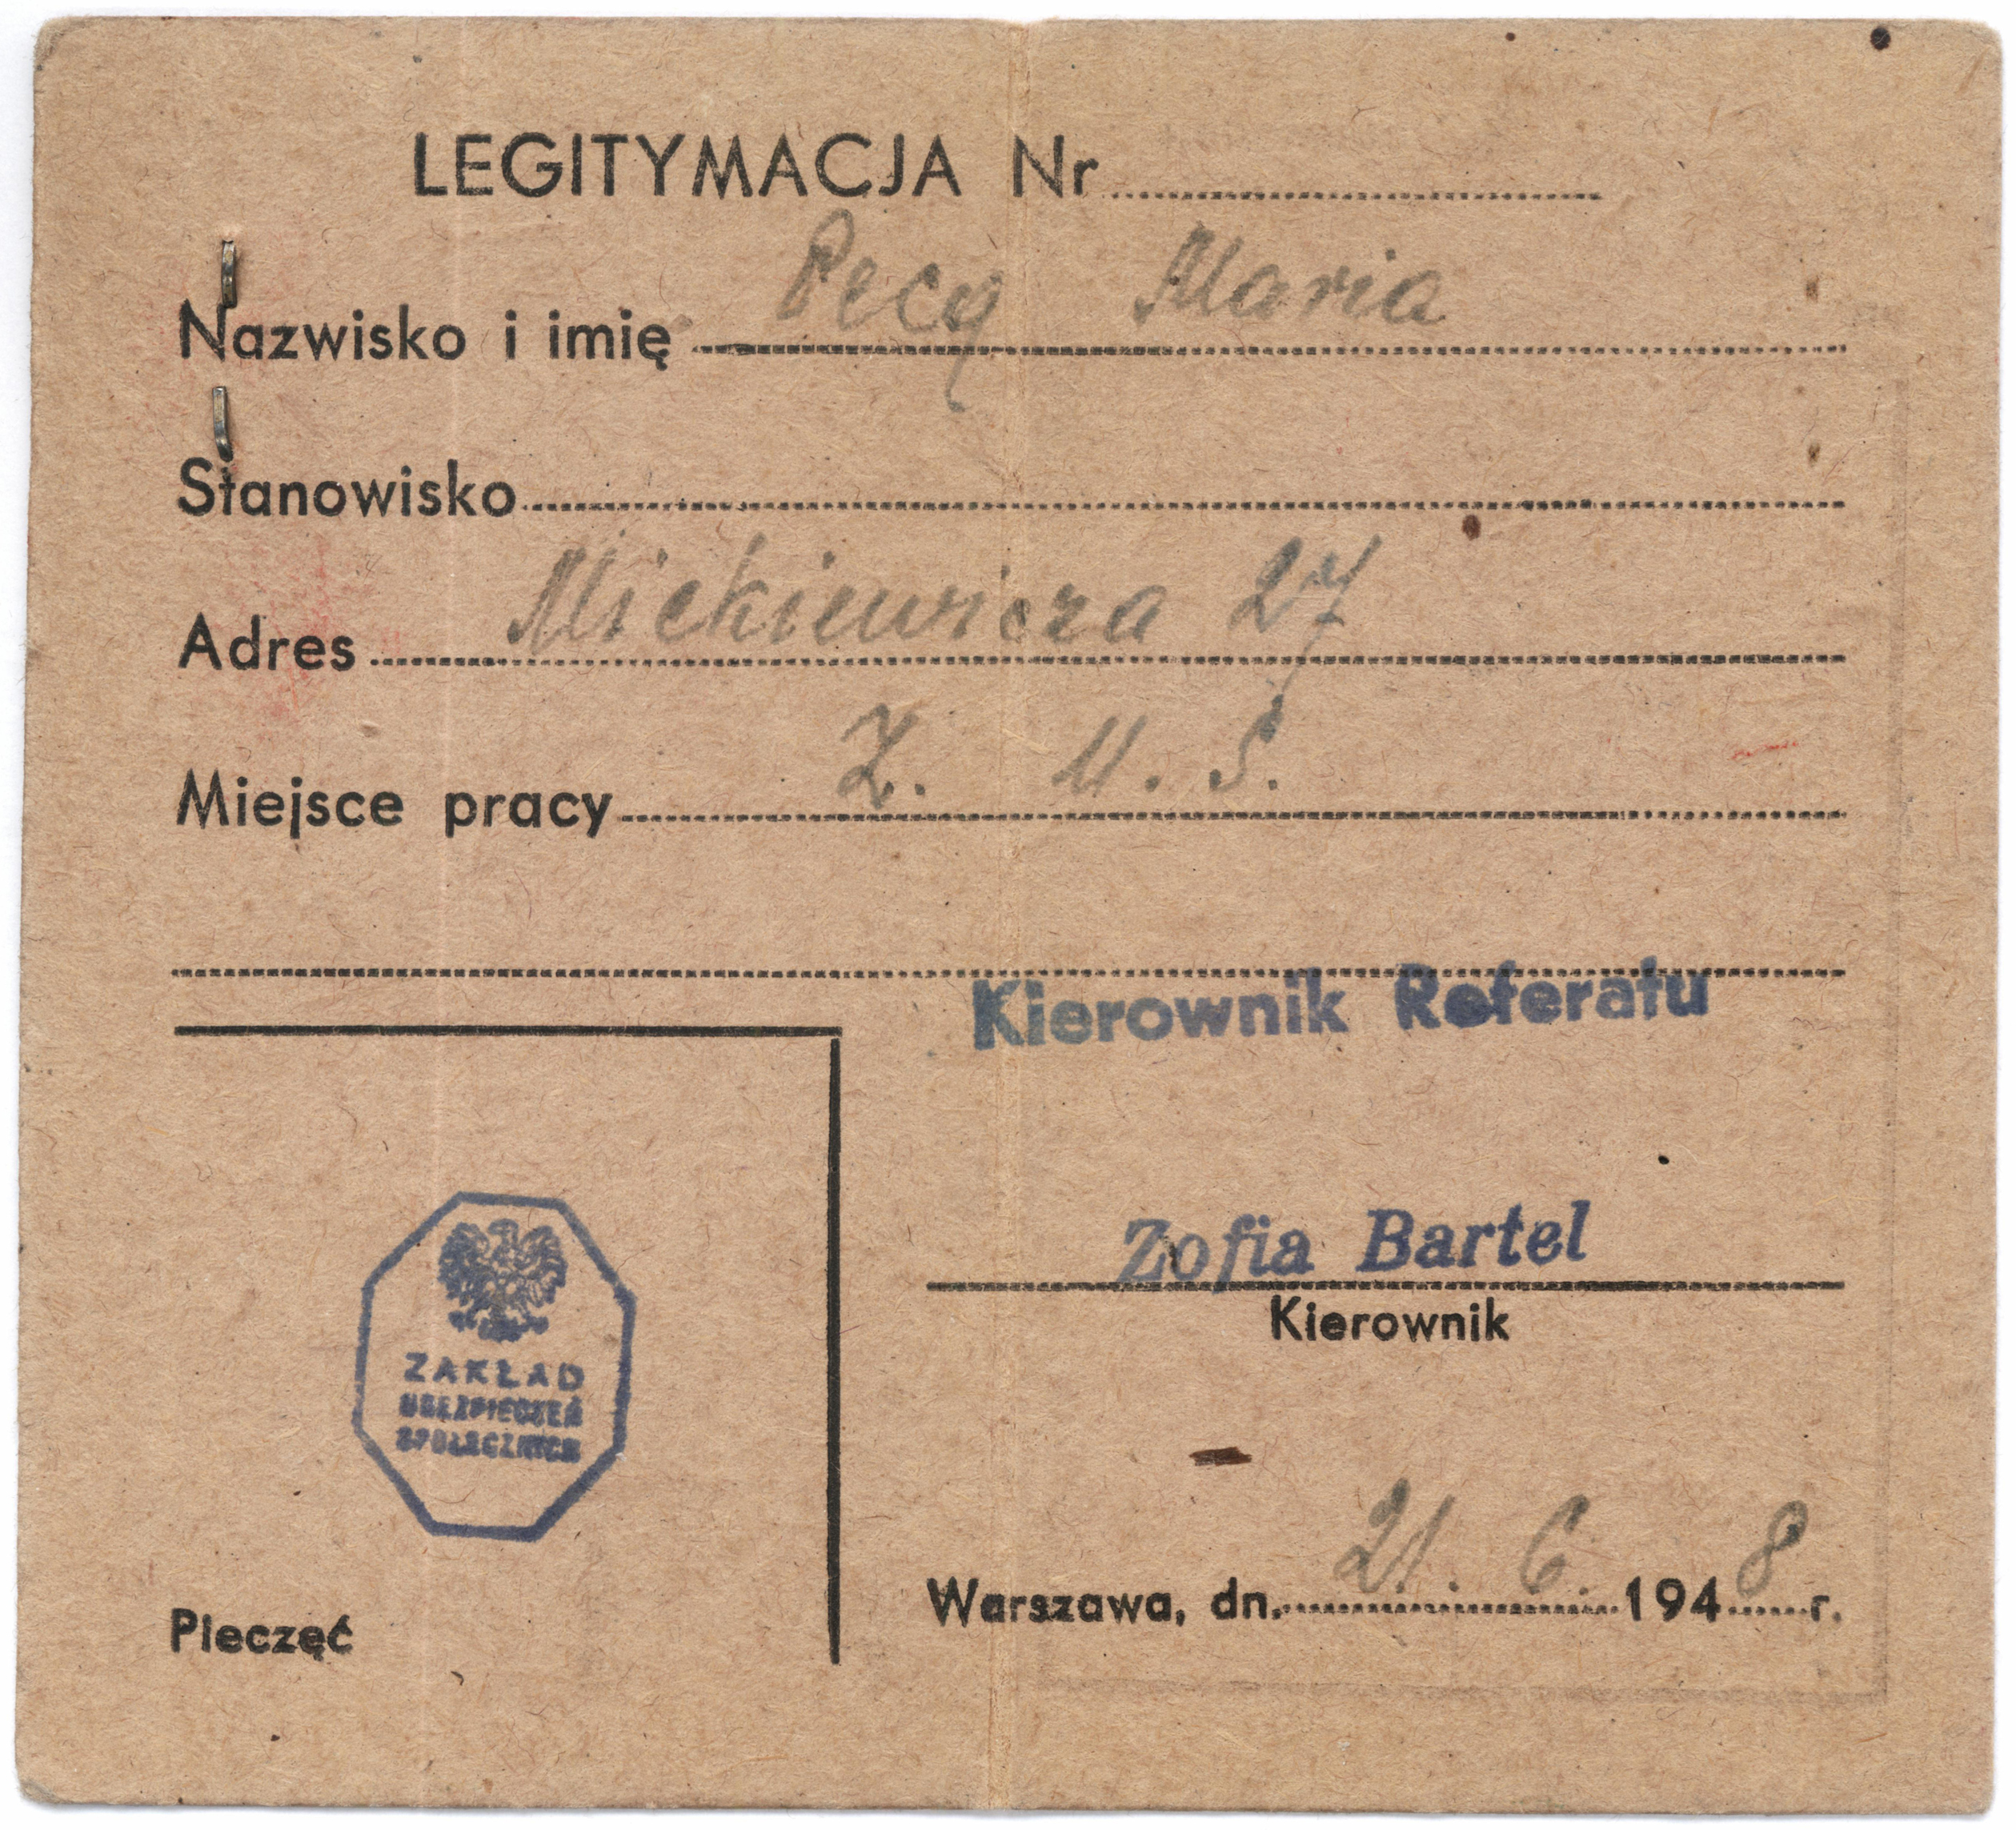 LEGITYMACJA Nr
Nazwisko i imię Pecq Maria
Stanowisko
Adres Mickiewicza 27
Miejsce pracy Z. U. S.
Kierownik Referatu
Zofia Bartel
Kierownik
ZAKŁAD
UBEZPIECZEŃ
SPOŁECZNYCH
Warszawa, dn. 21. 6. 1948 r.
Pieczęć